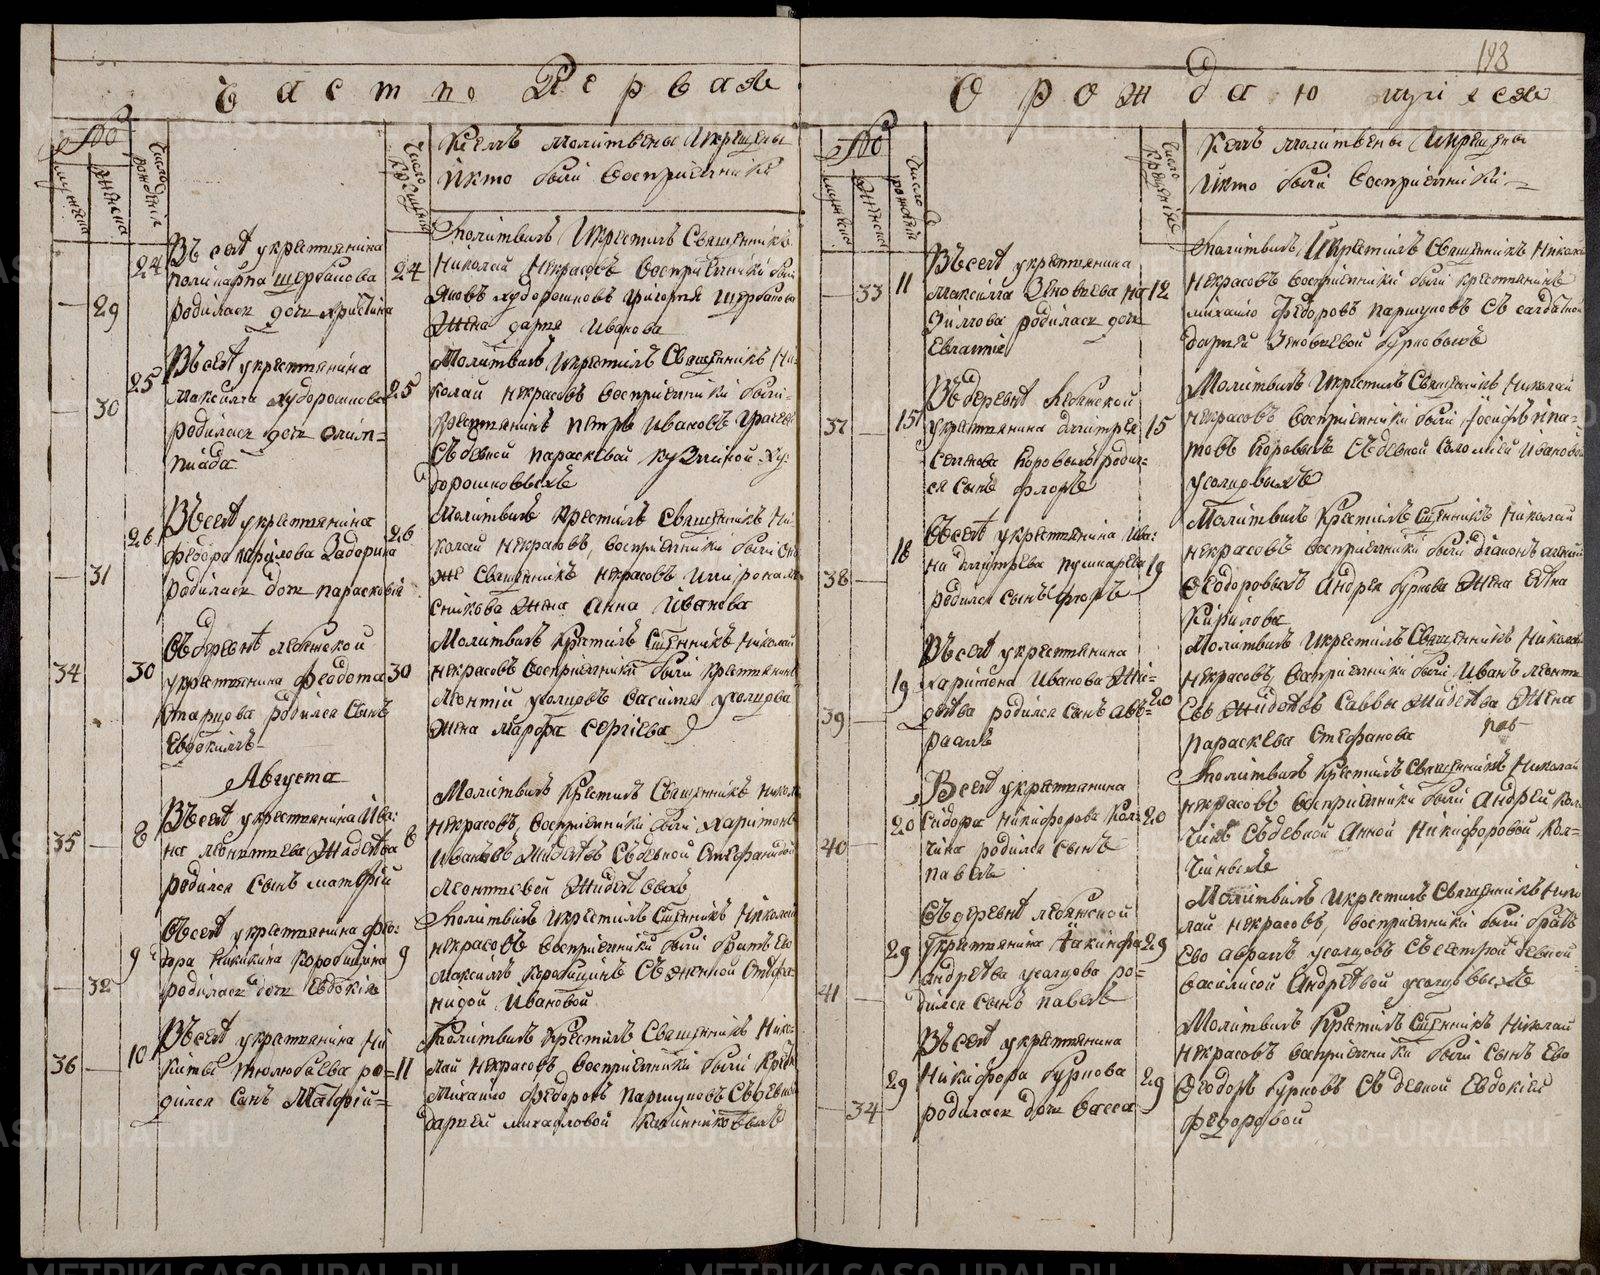 198
Часть Первая
О рождающихся
No
мужеска
женска
число рожденія
число крещенія
Кемъ молитвены Икрещены
Икто были восприемники
29
24
Въ селѣ у крестьянина
поликарпа щербакова
родилась дочь христина
24
Молитвилъ Икрестилъ Священникъ
Николай Некрасовъ восприемники были
Яковъ худорошковъ григорья щербакова
Жена дарья Иванова
30
25
Въ селѣ у крестьянина
максима худорошкова
родилась дочь олим=
піада
25
Молитвилъ Икрестилъ Священникъ Ни-
колай Некрасовъ восприемники были
крестьянинъ петръ Ивановъ
Съ девкой параскевой кузминой ху-
дорошковыхъ
31
26
Въ селѣ у крестьянина
федора кирилова Задорина
родилась дочь парасковія
26
Молитвилъ Крестилъ Священникъ Ни-
колай Некрасовъ, восприемники были
же Священникъ Некрасовъ
Жена Анна Иванова
34
30
Въ деревнѣ лебяжской
у крестьянина федота
Старцова родился Сынъ
Евдокимъ
30
Молитвилъ Крестилъ Сщенникъ Николай
Некрасовъ Восприемники были Крестьянинъ
Леонтій усолцовъ василья усолцова
Жена Марфа Сергіева
Августа
35
8
Въ селѣ у крестьянина Ива-
на леонтьева Жидѣева
родился Сынъ матфій
8
Молитвилъ Крестилъ Священникъ Николай
Некрасовъ, восприемники были харитонъ
Ивановъ Жидѣевъ Съ девкой Стефанидой
Леонтьевой Жидѣевыхъ
32
9
Въ селѣ у крестьянина фео-
дора Никикина Коробицина
родилась дочь Евдокія
9
Молитвилъ Икрестилъ Сщенникъ Николай
Некрасовъ Восприемники были братъ Ево
Максимъ Коробицинъ Съ женкой Стефа-
нидой Ивановой
36
10
Въ селѣ у крестьянина Ни
киты Молюбаева ро=
дился Сынъ Матфій=
11
Молитвилъ Крестилъ Священникъ Нико-
лай Некрасовъ Восприемники были
Михайло Федоровъ паршуковъ Съ девкой
дарьей михаловой Калинниковыхъ
No
мужеска
женска
число рожденій
число крещенія
Кемъ молитвены Икрещены
Икто были Восприемники
33
11
Въ селѣ у крестьянина
максима Зеновьева
родилась дочь
Евлампія
12
Молитвилъ, Икрестилъ Священникъ Николай
Некрасовъ Восприемники были крестьянинъ
михайло Федоровъ паршуковъ Съ салдаткой
дарьей Зеновьевой бурковыхъ
37
15
Въ деревнѣ лебяжской
у крестьянина дмитрея
семенова Коровыхъ родил=
ся Сынъ флоръ
15
Молитвилъ Икрестилъ Священникъ Николай
Некрасовъ Восприемники были Іосифъ ипа-
товъ Коровыхъ Съ девкой соломіей Ивановой
усолцовыхъ
38
18
Въ селѣ у крестьянина Ива-
на дмитрева пушкарева
родился сынъ флоръ
19
Молитвилъ Крестилъ Сщенникъ Николай
Некрасовъ Восприемники были
Феодоровыхъ Андрея буркова Жена Евгна
Кирилова
39
19
Въ селѣ у крестьянина
харитона Иванова Жи-
дѣева родился Сынъ авъ-
раамъ
20
Молитвилъ Икрестилъ Священникъ Николай
Некрасовъ, Восприемники были Иванъ леонть
евъ Жидѣевъ Саввы Жидѣева Жена
параскева Стефанова
40
20
В селѣ у крестьянина
Сидора Никифорова Кол-
чина родился Сынъ
павелъ
20
Молитвилъ Крестилъ Священникъ Николай
Некрасовъ Восприемники были Андрей Кол
чинъ Съ девкой Анной Никифоровой Кол-
чиныхъ
41
29
Въ деревнѣ лебяжской
у крестьянина Іакинфа
андреева усолцова ро-
дился сынъ павелъ
29
Молитвилъ Икрестилъ Священникъ Нико
лай Некрасовъ, восприемники были братъ
Ево абрамъ усолцовъ Съ сестрой девкой
василисой Андревой усолцовыхъ
34
29
Въ селѣ у крестьянина
Никифора буркова
родилась дочь васса
29
Молитвилъ Крестилъ Сщенникъ Николай
Некрасовъ Восприемники были Сынъ Ево
Феодоръ бурковъ Съ девкой Евдокіей
федоровой